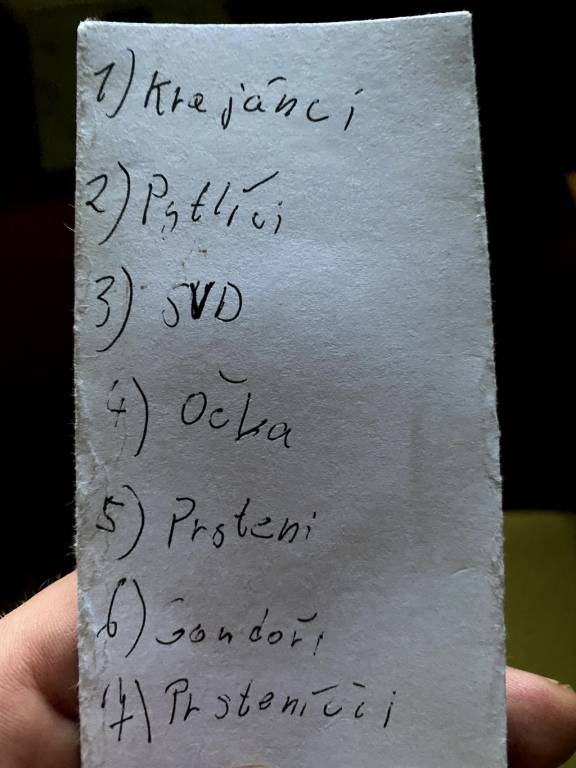 1) Krajánci
2) Pstlíci
3) SVD
4) Očka
5) Prsteni
6) Gondoři
7) Prsteníčci